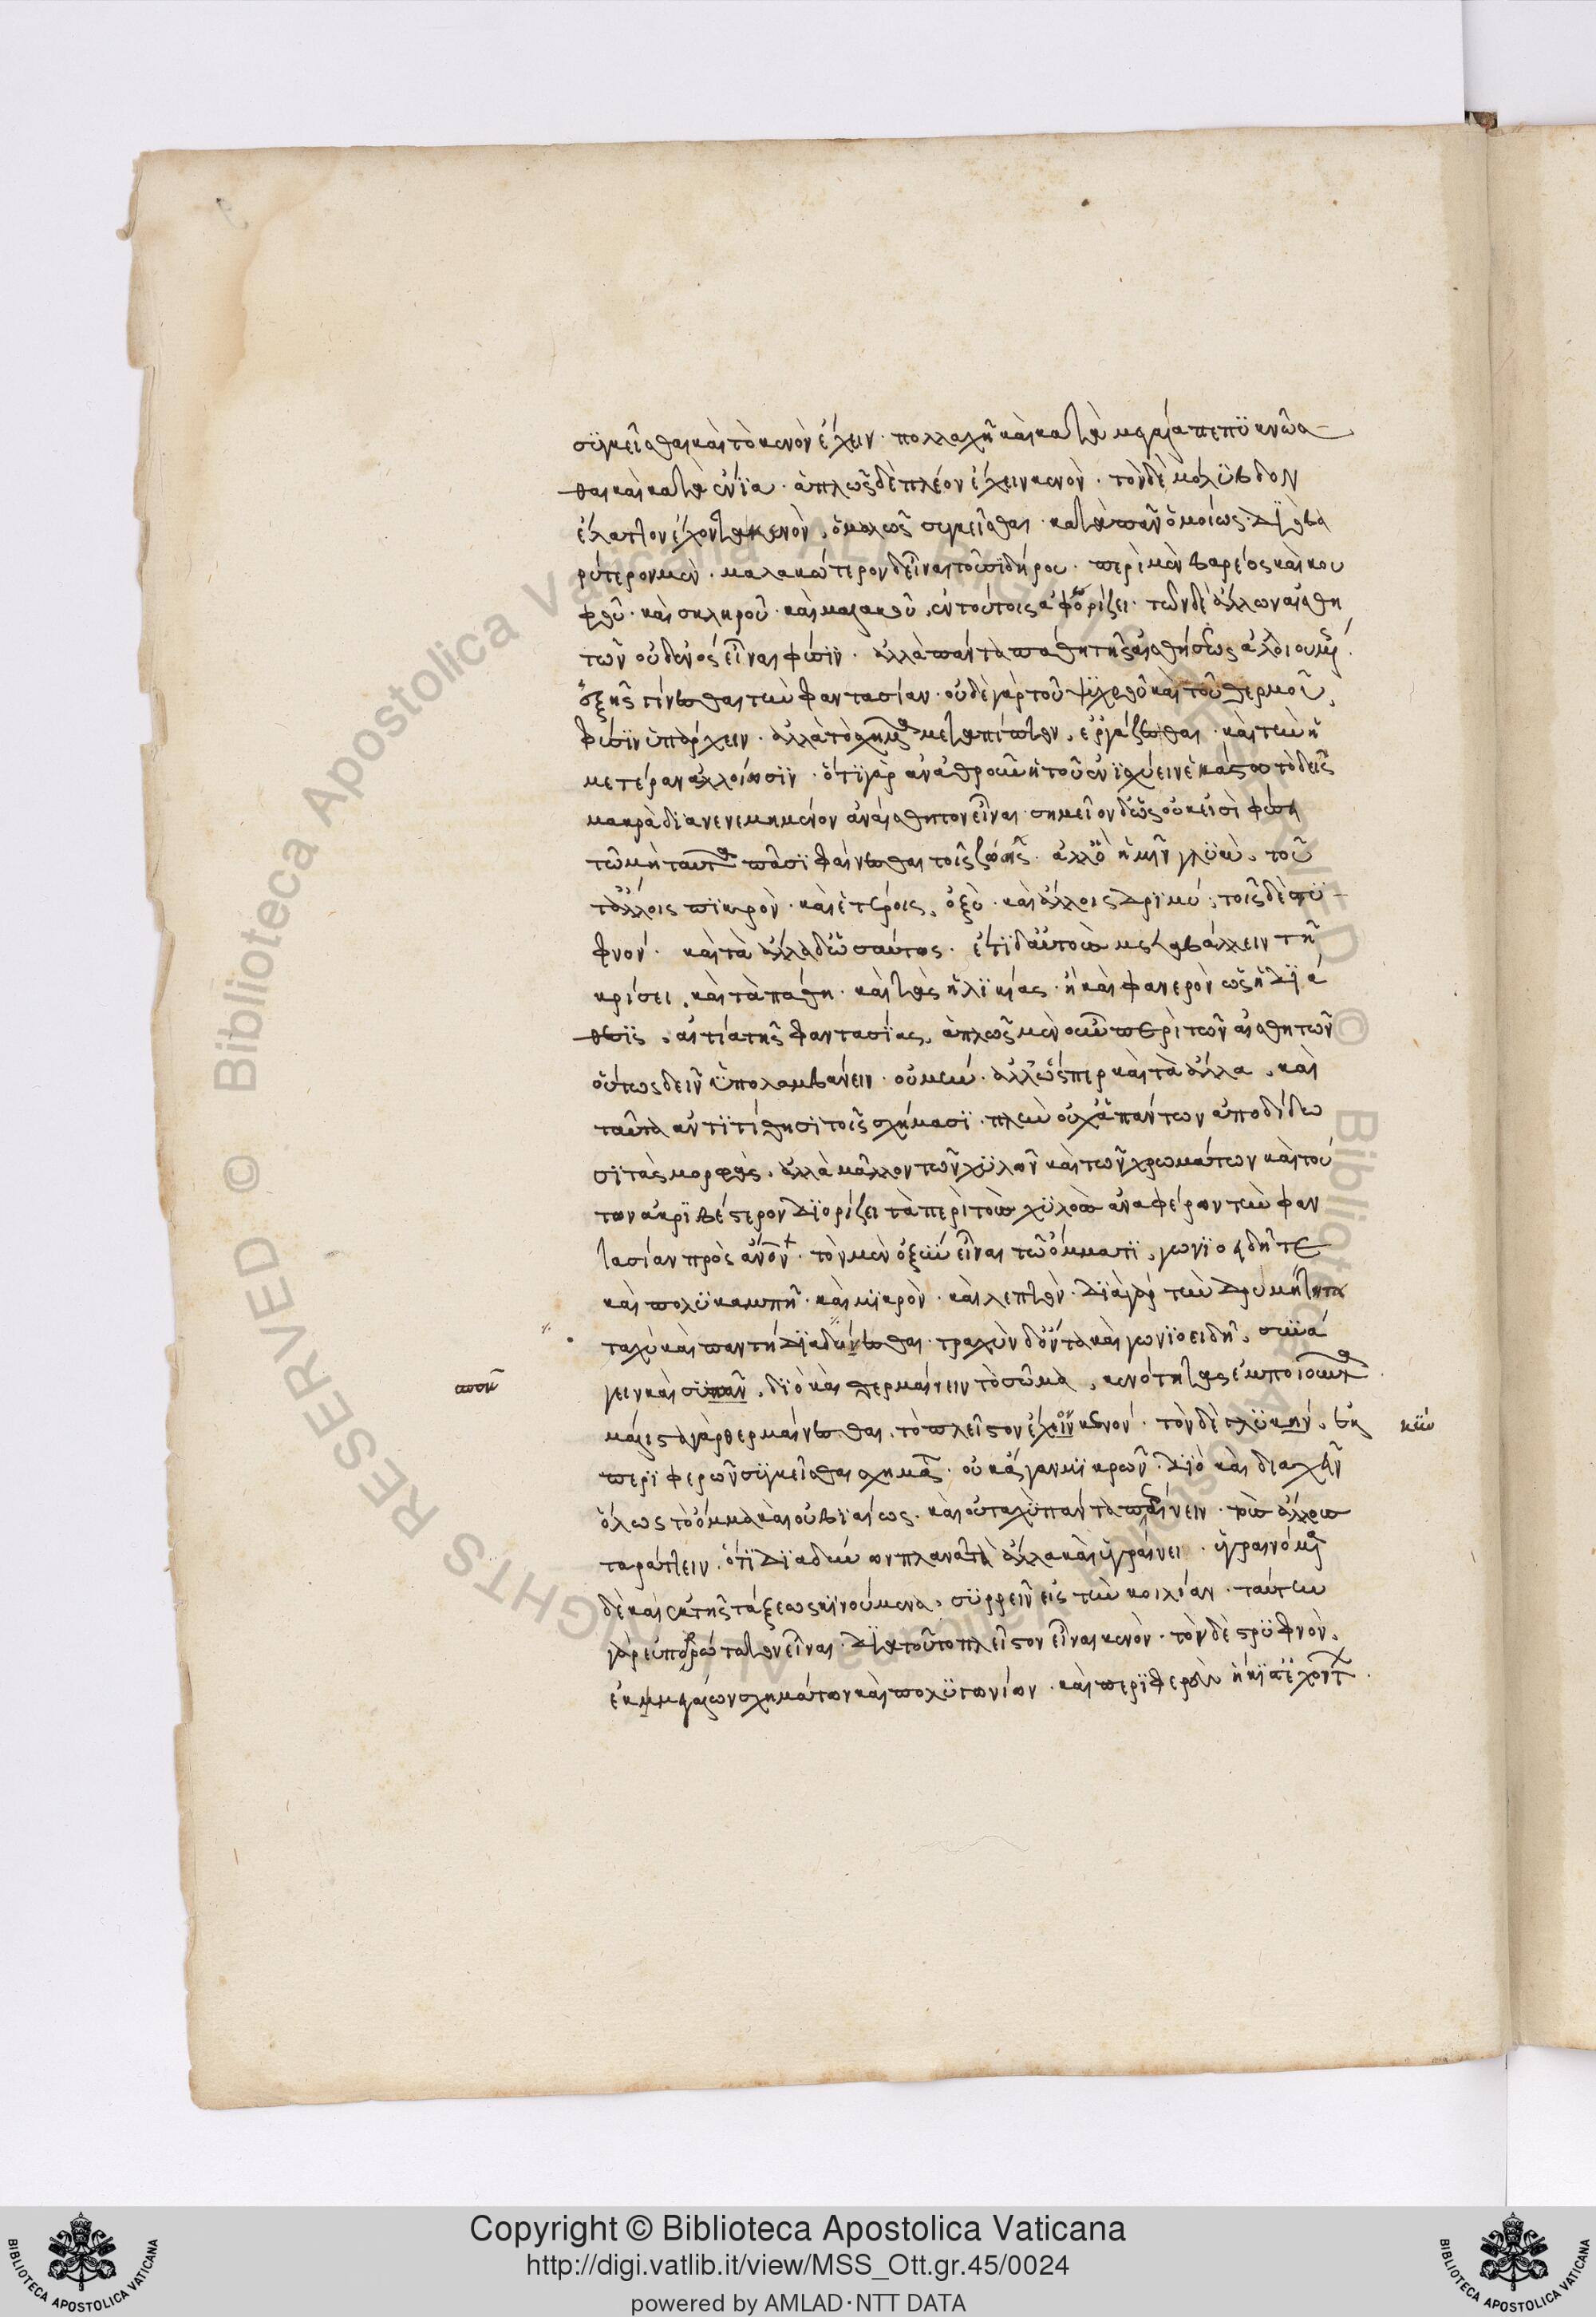 συγκεῖσθαι καὶ τὸ κενὸν ἔχειν· πολλαχῆ καὶ κατὰ μεγάλα πεπυκνῶσ
θαι καὶ κατὰ ἔνια· ἁπλῶς δὲ πλέον ἔχειν κενόν· τὸν δὲ μόλυβδον
ἔλαττον ἔχοντα κενὸν, ὁμαλῶς συγκεῖσθαι· κατὰ πᾶν ὁμοίως· διὸ βα
ρύτερον μὲν, μαλακώτερον δ' εἶναι τοῦ σιδήρου· περὶ μὲν βαρέος καὶ κού
φου· καὶ σκληροῦ· καὶ μαλακοῦ, ἐν τούτοις ἀφορίζει· τῶν δὲ ἄλλων αἰσθη
τῶν οὐδενὸς εἶναι φύσιν· ἀλλὰ πάντα πάθη τῆς αἰσθήσεως ἀλλοιουμένης·
ἐξ ἧς γίνεσθαι τὴν φαντασίαν· οὐδὲ γὰρ τοῦ ψυχροῦ καὶ τοῦ θερμοῦ,
φύσιν ὑπάρχειν· ἀλλὰ τὸ σχῆμα μεταπίπτον, ἐργάζεσθαι· καὶ τὴν ἡ
μετέραν ἀλλοίωσιν· ὅ τι γὰρ ἂν ἄθρουν ᾖ τοῦτ' ἐνισχύειν ἑκάστω τὸ δ' εἰς
μακρὰ διανενεμημένον ἀναίσθητον εἶναι· σημεῖον δ' ὡς οὐκ εἰσὶ φύσει
τῶ μὴ ταυτὰ πᾶσι φαίνεσθαι τοῖς ζώοις· ἀλλ' ὃ ἡμῖν γλυκὺ, τοῦ
τ' ἄλλοις πικρὸν· καὶ ἑτέροις, ὀξὺ· καὶ ἄλλοις δριμὺ· τοῖς δὲ στρυ
φνόν· καὶ τὰ ἄλλα δ' ὡσαύτως· ἔτι δ' αὐτοὺς μεταβάλλειν τῆ
κρίσει, καὶ τὰ πάθη· καὶ τὰς ἡλικίας· ᾗ καὶ φανερὸν ὡς ἡ διά
θεσις, αἰτία τῆς φαντασίας, ἁπλῶς μὲν οὖν περὶ τῶν αἰσθητῶν
οὕτως δεῖν ὑπολαμβάνειν· οὐ μὴν· ἀλλ' ὥσπερ καὶ τὰ ἄλλα, καὶ
ταῦτα ἀντιτίθησι τοῖς σχήμασι· πλὴν οὐχ ἁπάντων ἀποδίδω
σι τὰς μορφὰς, ἀλλὰ μᾶλλον τῶν χυλῶν καὶ τῶν χρωμάτων καὶ τού
των ἀκριβέστερον διορίζει τὰ περὶ τοὺς χυλοὺς ἀναφέρων τὴν φαν
τασίαν πρὸς ἄνον· τὸν μὲν ὀξὺν εἶναι τῶ ὄμματι, γωνιοειδῆ τε
καὶ πολυκαμπῆ· καὶ μικρὸν· καὶ λεπτὸν· διὰ γὰρ τὴν δριμύτητα
ταχὺ καὶ πάντη διαδύεσθαι· τραχὺν δ' ὄντα καὶ γωνιοειδῆ, συνά
γειν καὶ σπᾶν, διὸ καὶ θερμαίνειν τὸ σῶμα, κενότητας ἐμποιοῦντα·
μάλιστα γὰρ θερμαίνεσθαι, τὸ πλεῖστον ἔχον κενόν· τὸν δὲ γλυκὴν, ἐκ
περιφερῶν συγκεῖσθαι σχημάτων· οὐκ ἄγαν μικρῶν· διὸ καὶ διαχεῖν
ὅλως τὸ σῶμα καὶ οὐ βιαίως· καὶ οὐ ταχὺ πάντα περαίνειν· τοὺς ἄλλους
ταράττειν, ὅτι διαδύνων πλανᾶ τὰ ἄλλα καὶ ὑγραίνει· ὑγραινόμενα
δὲ καὶ ἐκ τῆς τάξεως κινούμενα, συρρεῖν εἰς τὴν κοιλίαν· ταύτην
γὰρ εὐπορώτατον εἶναι· διὰ τοῦτο πλεῖστον εἶναι κενὸν· τὸν δὲ στρυφνὸν,
ἐκ μεγάλων σχημάτων καὶ πολυγωνίων· καὶ περιφερὲς ἥκιστ' ἐχόντων·
Copyright © Biblioteca Apostolica Vaticana
http://digi.vatlib.it/view/MSS_Ott.gr.45/0024
powered by AMLAD·NTT DATA